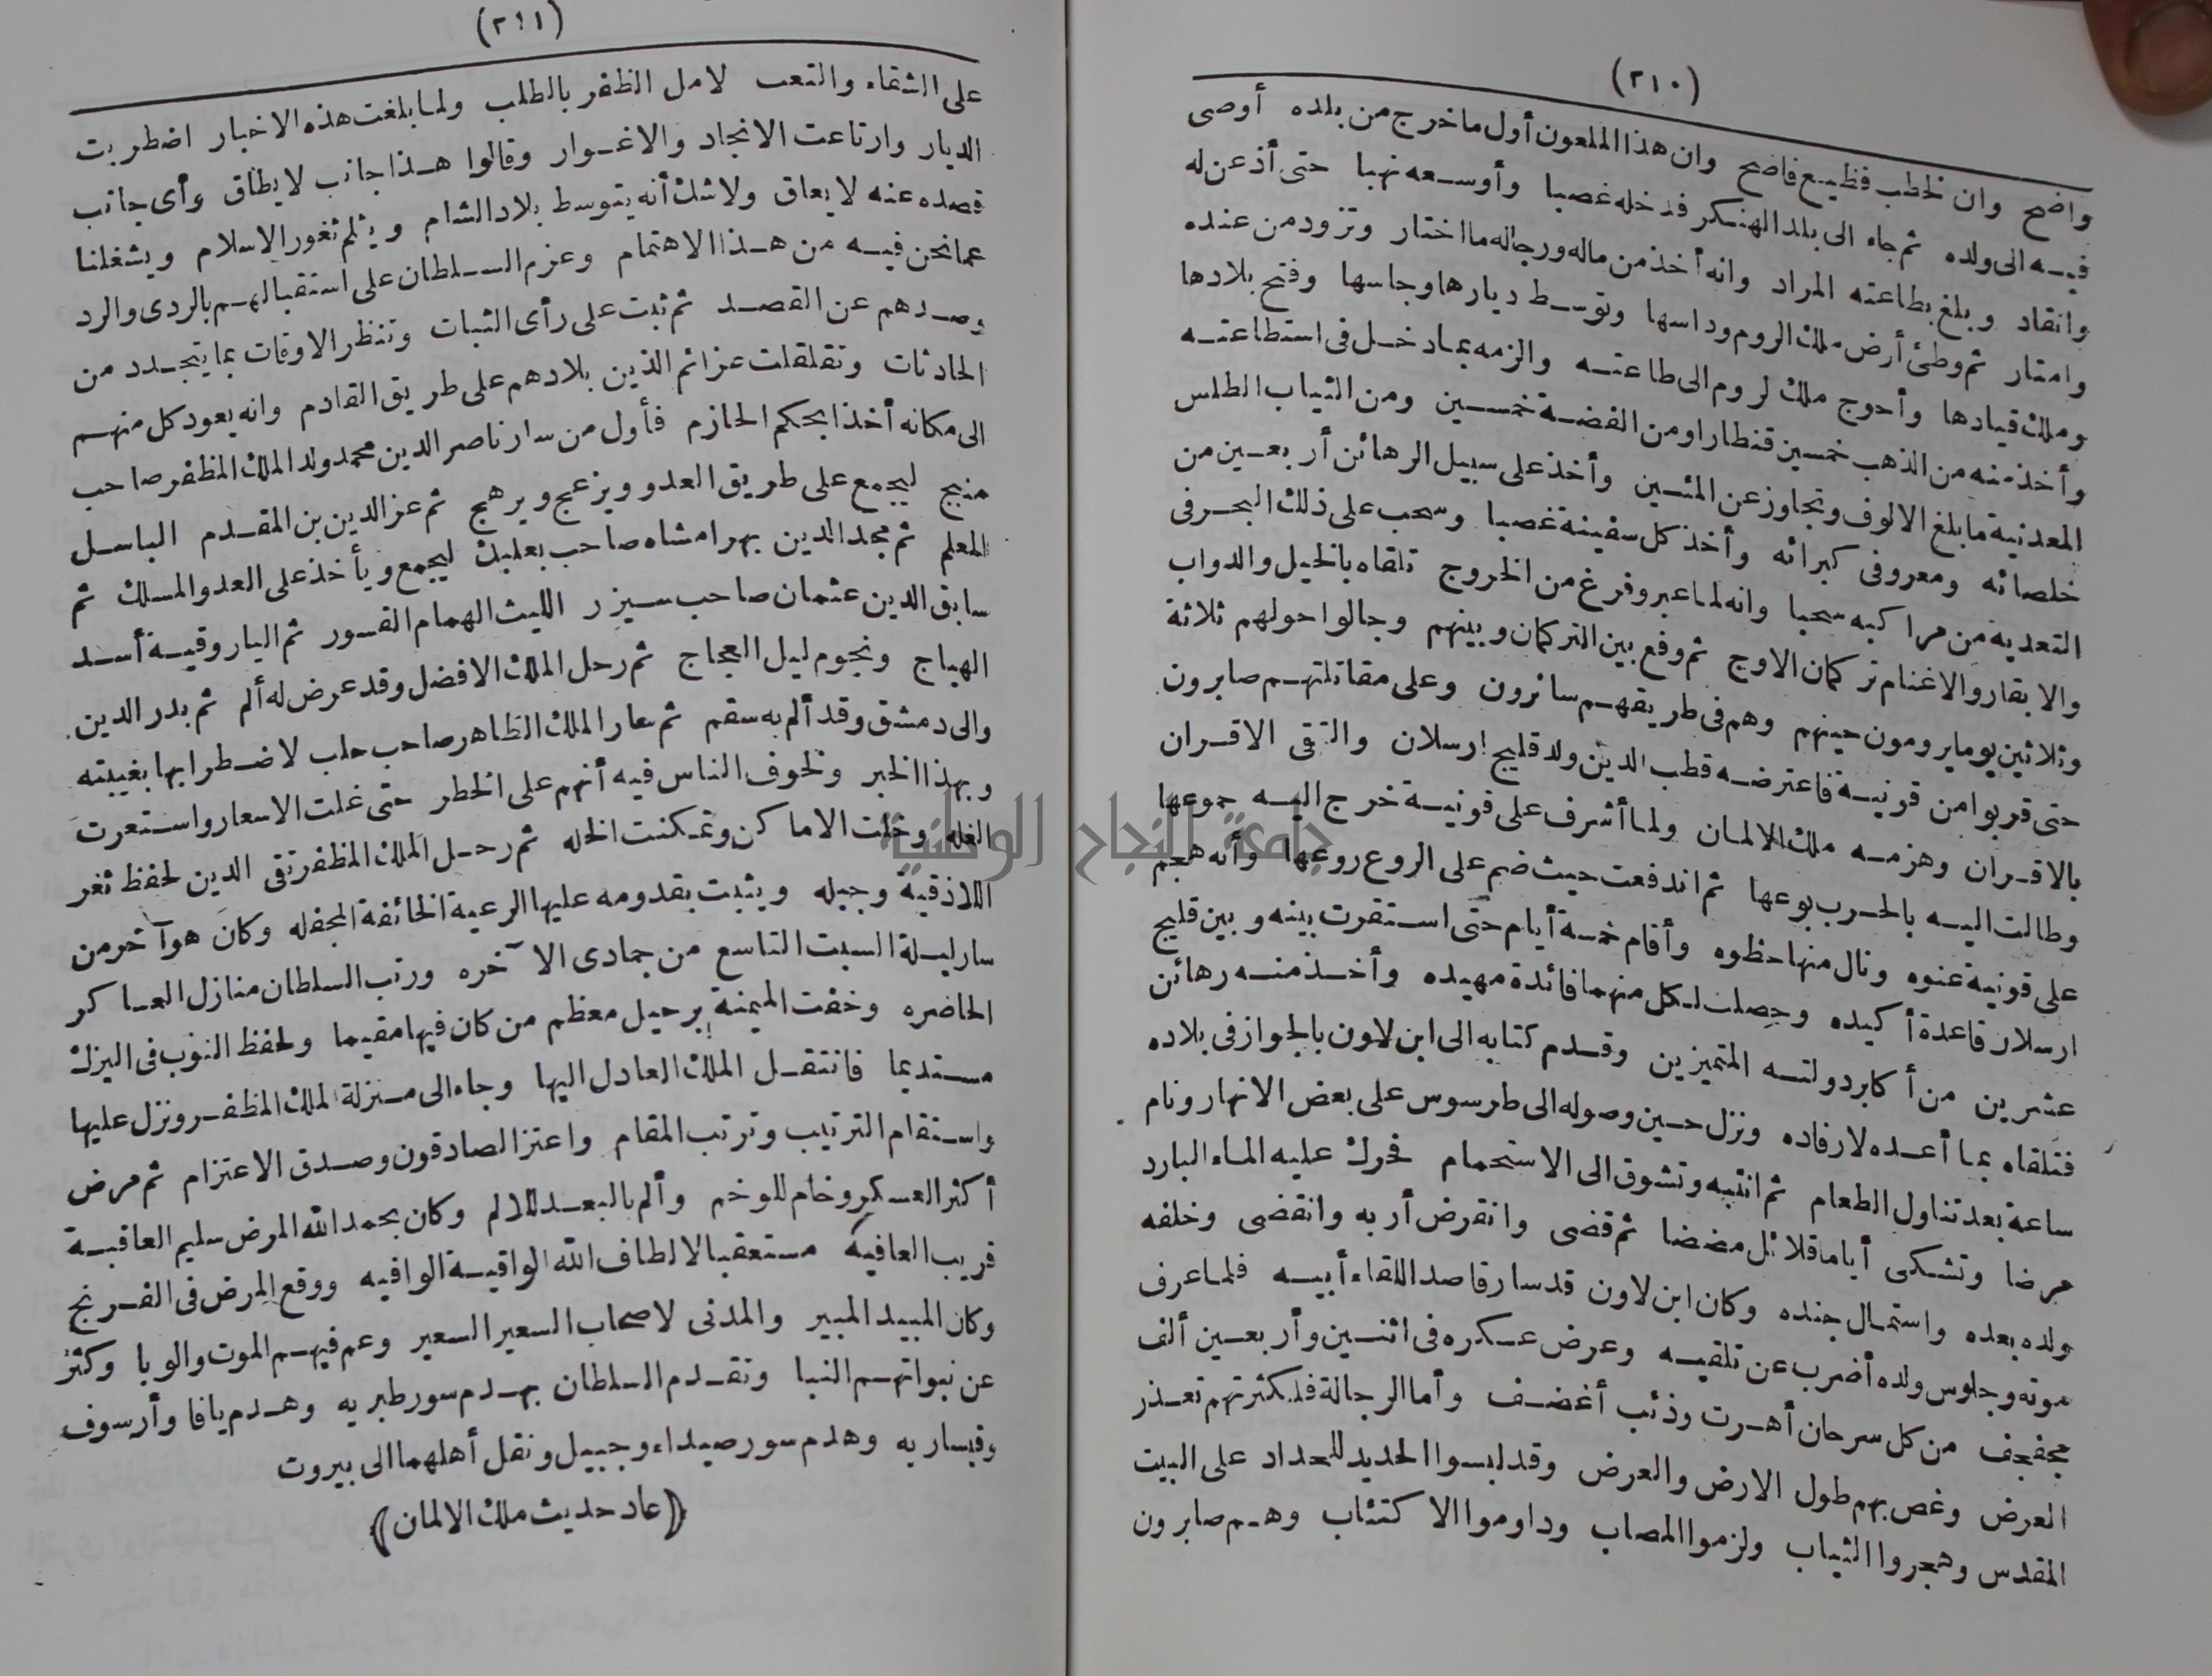 (٢١٠)
واضح وان لخطب فظيع فاضح وان هذا الملعون أول ما خرج من بلده أوصى
فيه الى ولده ثم جاء الى بلد الهنكر فدخله غصبا وأوسعه نهبا حتى أذعن له
وانقاد وبلغ بطاعته المراد وانه أخذ من ماله ورجاله ما اختار وتزود من عنده
وامتار ثم وطئ أرض ملك الروم وداسها وتوسط ديارها وجاسها وفتح بلادها
وملك قيادها وأحوج ملك لروم الى طاعته والزمه بما دخل فى استطاعته
وأخذ منه من الذهب خمسين قنطارا ومن الفضة خمسين ومن الثياب الطلس
المعدنية ما بلغ الالوف وتجاوز عن المئين وأخذ على سبيل الرهائن أربعين من
خلصائه ومعروفى كبرائه وأخذ كل سفينة غصبا وسحب على ذلك البحر فى
التعدية من مراكبه سحبا وانه لما عبر وفرغ من الخروج تلقاه بالخيل والدواب
والابقار والاغنام تركمان الاوج ثم وقع بين التركمان وبينهم وجالوا حولهم ثلاثة
وثلاثين يوما يرومون حينهم وهم فى طريقهم سائرون وعلى مقاتلتهم صابرون
حتى قربوا من قونية فاعترضه قطب الدين ولد قليج ارسلان والتقى الاقران
بالاقران وهزمه ملك الالمان ولما أشرف على قونية خرج اليه جموعها
وطالت اليه بالحرب بوعها ثم اندفعت حيث ضم على الروع روعها وأنه هجم
على قونية عنوه ونال منها حظوه وأقام خمسة أيام حتى استقرت بينه وبين قليج
ارسلان قاعدة أكيده وحصلت لكل منهما فائدة مهيده وأخذ منه رهائن
عشرين من أكابر دولته المتميزين وقدم كتابه الى ابن لاون بالجواز فى بلاده
فتلقاه بما أعده لارفاده ونزل حين وصوله الى طرسوس على بعض الانهار ونام
ساعة بعد تناول الطعام ثم انتبه وتشوق الى الاستحمام فحرك عليه الماء البارد
مرضا وتشكى أياما قلائل مضضا ثم قضى وانقرض أربه وانقضى وخلفه
ولده بعده واستمال جنده وكان ابن لاون قد سار قاصدا للقاء أبيه فلما عرف
موته وجلوس ولده أضرب عن تلقيه وعرض عسكره فى اثنين وأربعين ألف
مجفجف من كل سرحان أهرت وذئب أغضف وأما الرجالة فلكثرتهم تعذر
العرض وغص بهم طول الارض والعرض وقد لبسوا الحديد للحداد على البيت
المقدس وهجروا الثياب ولزموا المصاب وداوموا الاكتئاب وهم صابرون
(٢١١)
على الشقاء والتعب لامل الظفر بالطلب ولما بلغت هذه الاخبار اضطربت
الديار وارتاعت الانجاد والاغوار وقالوا هذا جانب لا يطاق وأى جانب
قصده عنه لا يعاق ولا شك أنه يتوسط بلاد الشام ويثلم ثغور الاسلام ويشغلنا
عما نحن فيه من هذا الاهتمام وعزم السلطان على استقبالهم بالردى والرد
وصدهم عن القصد ثم ثبت على رأى الثبات وتنظر الاوقات بما يتجدد من
الحادثات وتقلقلت عزائم الذين بلادهم على طريق القادم وانه يعود كل منهم
الى مكانه أخذا بحكم الحازم فأول من سار ناصر الدين محمد ولد الملك المظفر صاحب
منبج ليجمع على طريق العدو ويزعج ويرهج ثم عز الدين بن المقدم الباسل
المعلم ثم مجد الدين بهرامشاه صاحب بعلبك ليجمع ويأخذ على العدو المسلك ثم
سابق الدين عثمان صاحب سيزر الليث الهمام القسور ثم الياروقية أسد
الهياج ونجوم ليل العجاج ثم رحل الملك الافضل وقد عرض له ألم ثم بدر الدين
والى دمشق وقد ألم به سقم ثم سار الملك الظاهر صاحب حلب لاضطرابها بغيبته
وبهذا الخبر ولخوف الناس فيه أنهم على الخطر حتى غلت الاسعار واستعرت
الغله وخلت الاماكن وتمكنت الخله ثم رحل الملك المظفر تقى الدين لحفظ ثغر
اللاذقية وجبله ويثبت بقدومه عليها الرعية الخائفة المجفله وكان هو آخر من
سار ليلة السبت التاسع من جمادى الآخره ورتب السلطان منازل العساكر
الحاضره وخفت الميمنة برحيل معظم من كان فيها مقيما ولحفظ النوب فى اليزك
مستديما فانتقل الملك العادل اليها وجاء الى منزلة الملك المظفر ونزل عليها
واستقام الترتيب وترتب المقام واعتز الصادقون وصدق الاعتزام ثم مرض
أكثر العسكر وخام للوخم وألم بالبعد للالم وكان بحمد الله المرض سليم العاقبة
قريب العافية مستعقبا لالطاف الله الواقية الوافيه ووقع المرض فى الفرنج
وكان المبيد المبير والمدنى لاصحاب السعير السعير وعم فيهم الموت والوبا وكثر
عن نبواتهم النبا وتقدم السلطان بهدم سور طبريه وهدم يافا وأرسوف
وقيساريه وهدم سور صيداء وجبيل ونقل أهلهما الى بيروت
﴿عاد حديث ملك الالمان﴾
جامعة النجاح الوطنية